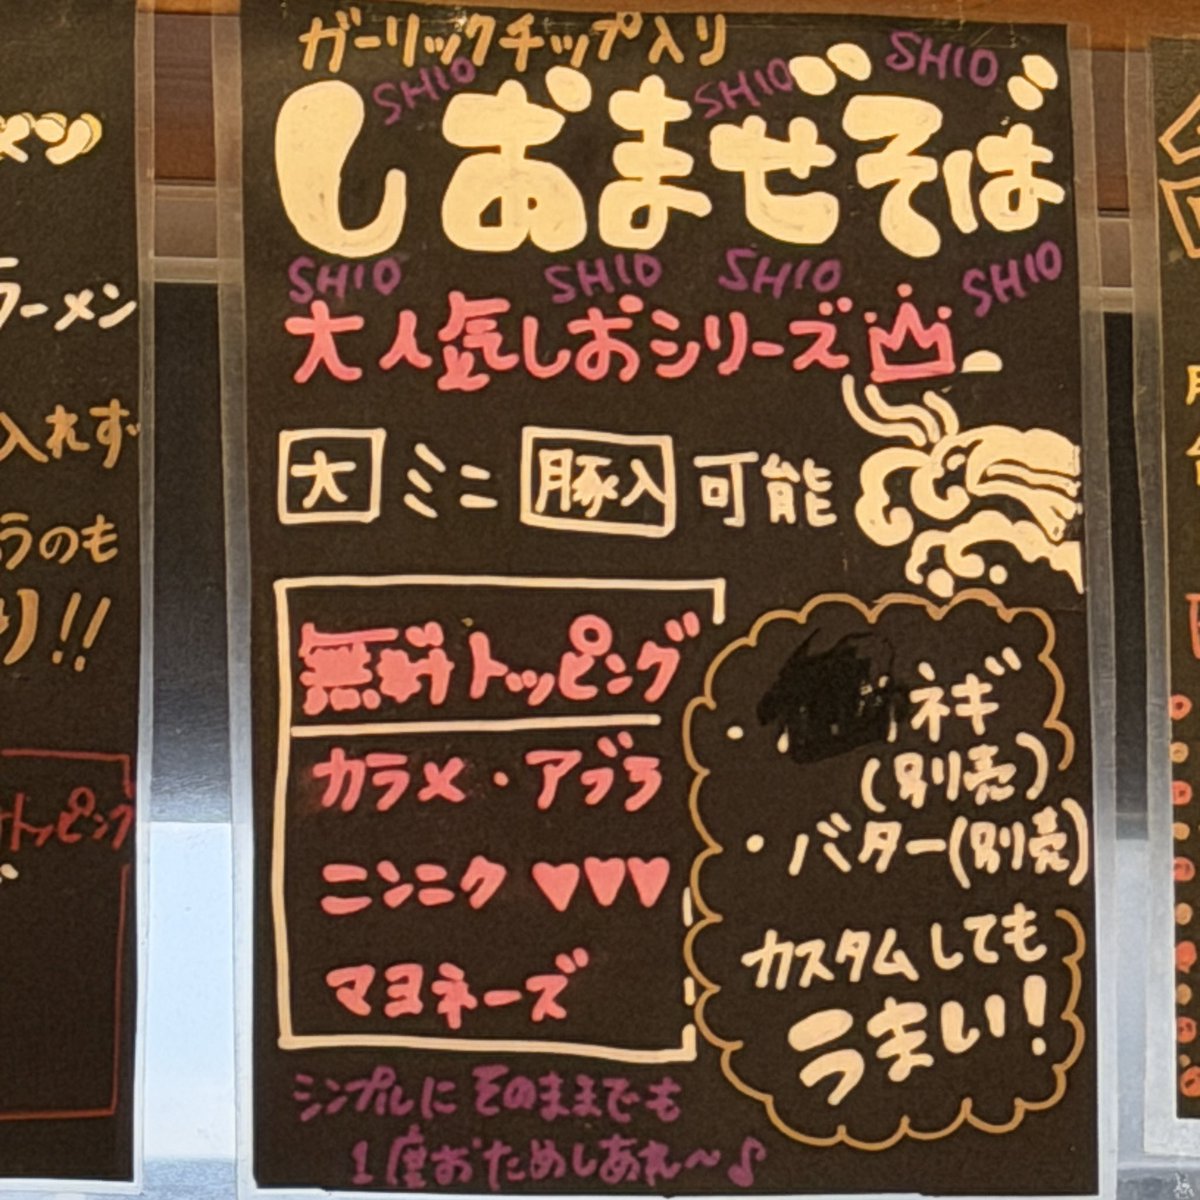 ガーリックチップ入り
SHIO SHIO SHIO
しおまぜそば
SHIO SHIO SHIO SHIO
大人気しおシリーズ
大 ミニ 豚入 可能
無料トッピング
カラメ・アブラ
ニンニク ♥♥♥
マヨネーズ
ネギ
(別売)
・バター(別売)
カスタムしても
うまい!
シンプルにそのままでも
1度おためしあれ〜♪
メン
ラーメン
入れず
うのも
り!!
トッピング